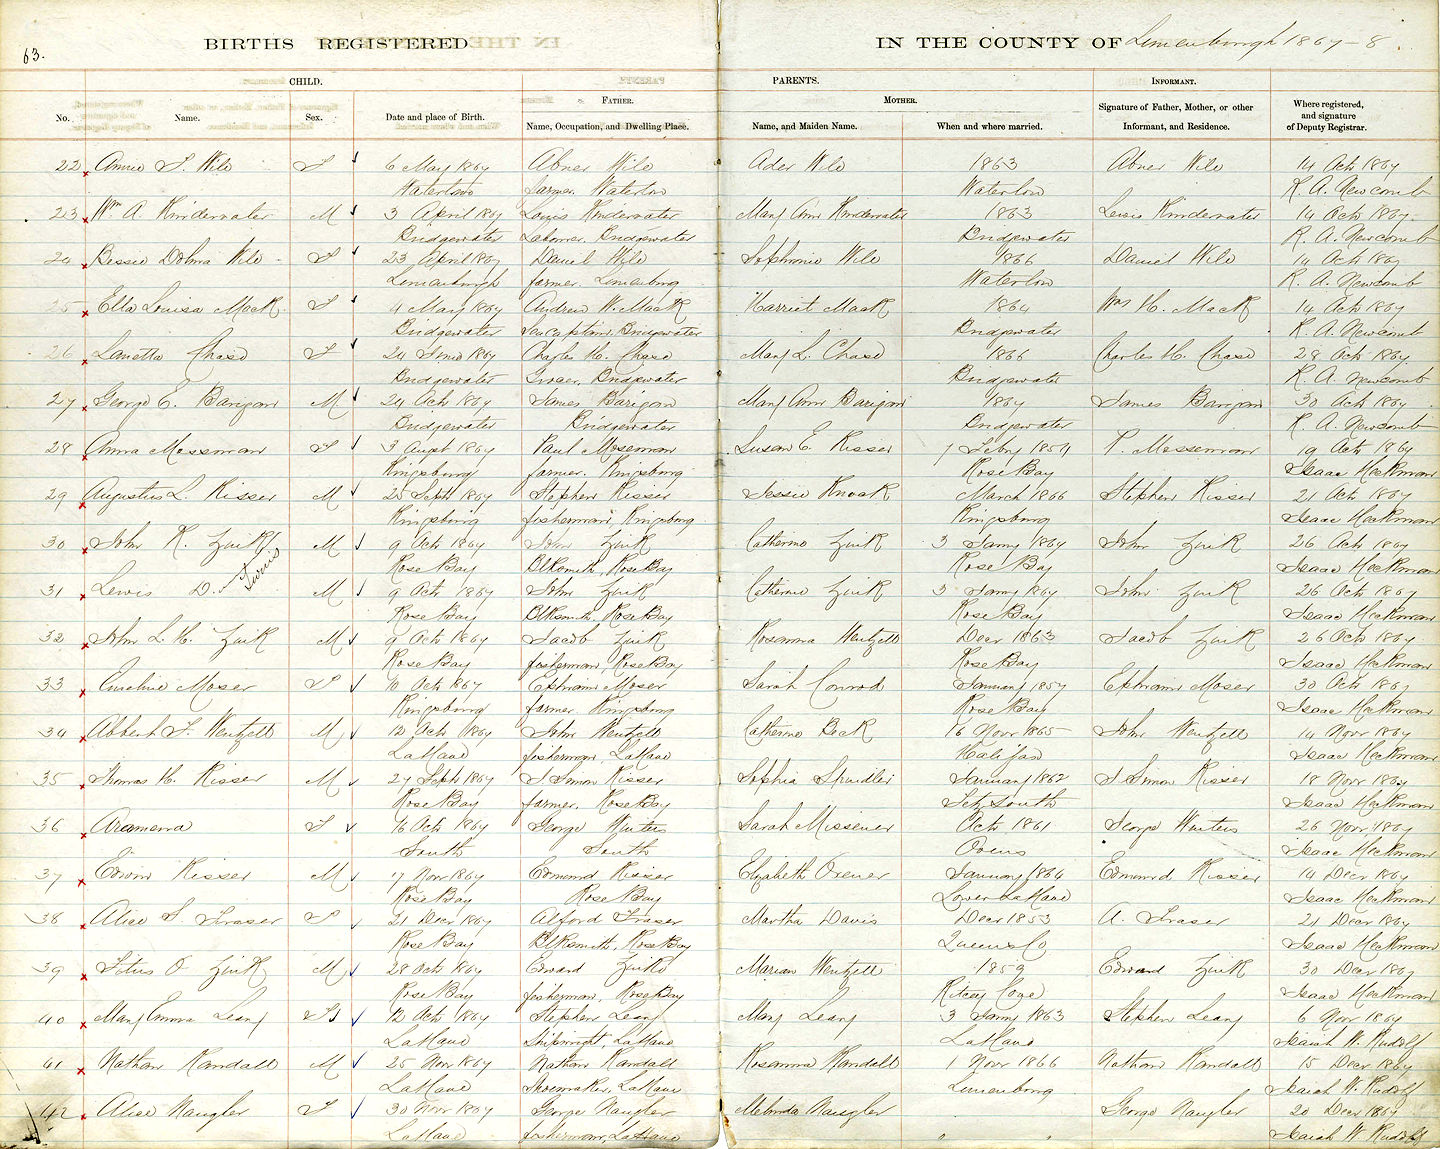 63.
BIRTHS REGISTERED
IN THE COUNTY OF Lunenburgh 1867-8
CHILD.
PARENTS.
INFORMANT.
No. Name. Sex. Date and place of Birth.
FATHER.
Name, Occupation, and Dwelling Place.
MOTHER.
Name, and Maiden Name. When and where married.
Signature of Father, Mother, or other Informant, and Residence.
Where registered, and signature of Deputy Registrar.
22 Annie F. Wile F 6 May 1867 Abner Wile Ader Wile 1863 Abner Wile 14 Oct 1867
Waterloo farmer. Waterloo Waterloo R. A. Newcomb
23 Wm A. Kindervater M 3 April 1867 Louis Kindervater Mary Ann Kindervater 1863 Lewis Kindervater 14 Oct 1867
Bridgewater Laborer. Bridgewater Bridgewater R. A. Newcomb
24 Bessie Wile F 23 April 1867 Daniel Wile Sephronie Wile 1866 Daniel Wile 14 Oct 1867
Lunenburgh farmer Lunenburg Waterloo R. A. Newcomb
25 Ella Louisa Mack F 4 May 1867 Andrew W. Mack Harriet Mack 1864 Wm H. Mack 14 Oct 1867
Bridgewater Bridgewater Bridgewater R. A. Newcomb
26 Lanetta Chase F 24 June 1867 Charles H. Chase Mary L. Chase 1866 Charles H. Chase 28 Oct 1867
Bridgewater Grocer. Bridgewater Bridgewater R. A. Newcomb
27 George E. Barigan M 24 Oct 1867 James Barigan Mary Ann Barigan 1867 James Barigan 30 Oct 1867
Bridgewater Bridgewater Bridgewater R. A. Newcomb
28 Anna Mossman F 3 Augst 1867 Paul Moseman Susan E Risser 7 Feby 1857 P. Mosseman 19 Oct 1867
Kingsburg farmer. Kingsburg Rose Bay Isaac Heckman
29 Augustus L. Risser M 25 Sept 1867 Stephen Risser Jessie Knock March 1866 Stephen Risser 21 Oct 1867
Kingsburg fisherman, Kingsburg Kingsburg Isaac Heckman
30 John R. Zink M 9 Oct 1867 John Zink Catherine Zink 3 Jany 1867 John Zink 26 Oct 1867
Twins
Rose Bay Blksmith, Rose Bay Rose Bay Isaac Heckman
31 Lewis D. M 9 Oct 1867 John Zink Catherine Zink 3 Jany 1867 John Zink 26 Oct 1867
Rose Bay Blksmith, Rose Bay Rose Bay Isaac Heckman
32 John L. H. Zink M 9 Oct 1867 Jacob Zink Rosanna Wentzell Decr 1863 Jacob Zink 26 Oct 1867
Rose Bay fisherman, Rose Bay Rose Bay Isaac Heckman
33 Emeline Moser F 10 Oct 1867 Ephraim Moser Sarah Conrod January 1857 Ephraim Moser 30 Oct 1867
Kingsburg farmer. Kingsburg Rose Bay Isaac Heckman
34 Abbert F. Wentzell M 12 Oct 1867 John Wentzell Catherine Beck 16 Novr 1865 John Wentzell 14 Novr 1867
LaHave fisherman, LaHave Halifax Isaac Heckman
35 Thomas H. Risser M 27 Sept 1867 J. Simon Risser Sophia Spindler January 1862 J Simon Risser 18 Novr 1867
Rose Bay farmer. Rose Bay South Isaac Heckman
36 Aramenia F 16 Oct 1867 George Winters Sarah Missener Oct 1861 George Winters 26 Novr 1867
South South Ovens Isaac Heckman
37 Edwin Risser M 17 Novr 1867 Edmund Risser Elizabeth Orener January 1864 Edmund Risser 14 Decr 1867
Rose Bay Rose Bay Lower LaHave Isaac Heckman
38 Alice F. Fraser F 21 Decr 1867 Alford Fraser Martha Davis Decr 1853 A. Fraser 21 Decr 1867
Rose Bay Blksmith, Rose Bay Queens Co Isaac Heckman
39 Titus O Zink M 28 Oct 1867 Edward Zink Marian Wentzell 1859 Edward Zink 30 Decr 1867
Rose Bay fisherman, Rose Bay Ritcey Cove Isaac Heckman
40 Mary Emma Leary F 12 Oct 1867 Stephen Leary Mary Leary 3 Jany 1863 Stephen Leary 6 Novr 1867
LaHave Shipwright, LaHave LaHave Isaiah W. Rudolf
41 Nathan Randall M 25 Nov 1867 Nathan Randall Rosanna Randall 1 Novr 1866 Nathan Randall 15 Decr 1867
LaHave Shoemaker, LaHave Lunenburg Isaiah W. Rudolf
42 Alice Naugler F 30 Novr 1867 George Naugler Melinda Naugler George Naugler 20 Decr 1867
LaHave fisherman, LaHave " " Isaiah W. Rudolf